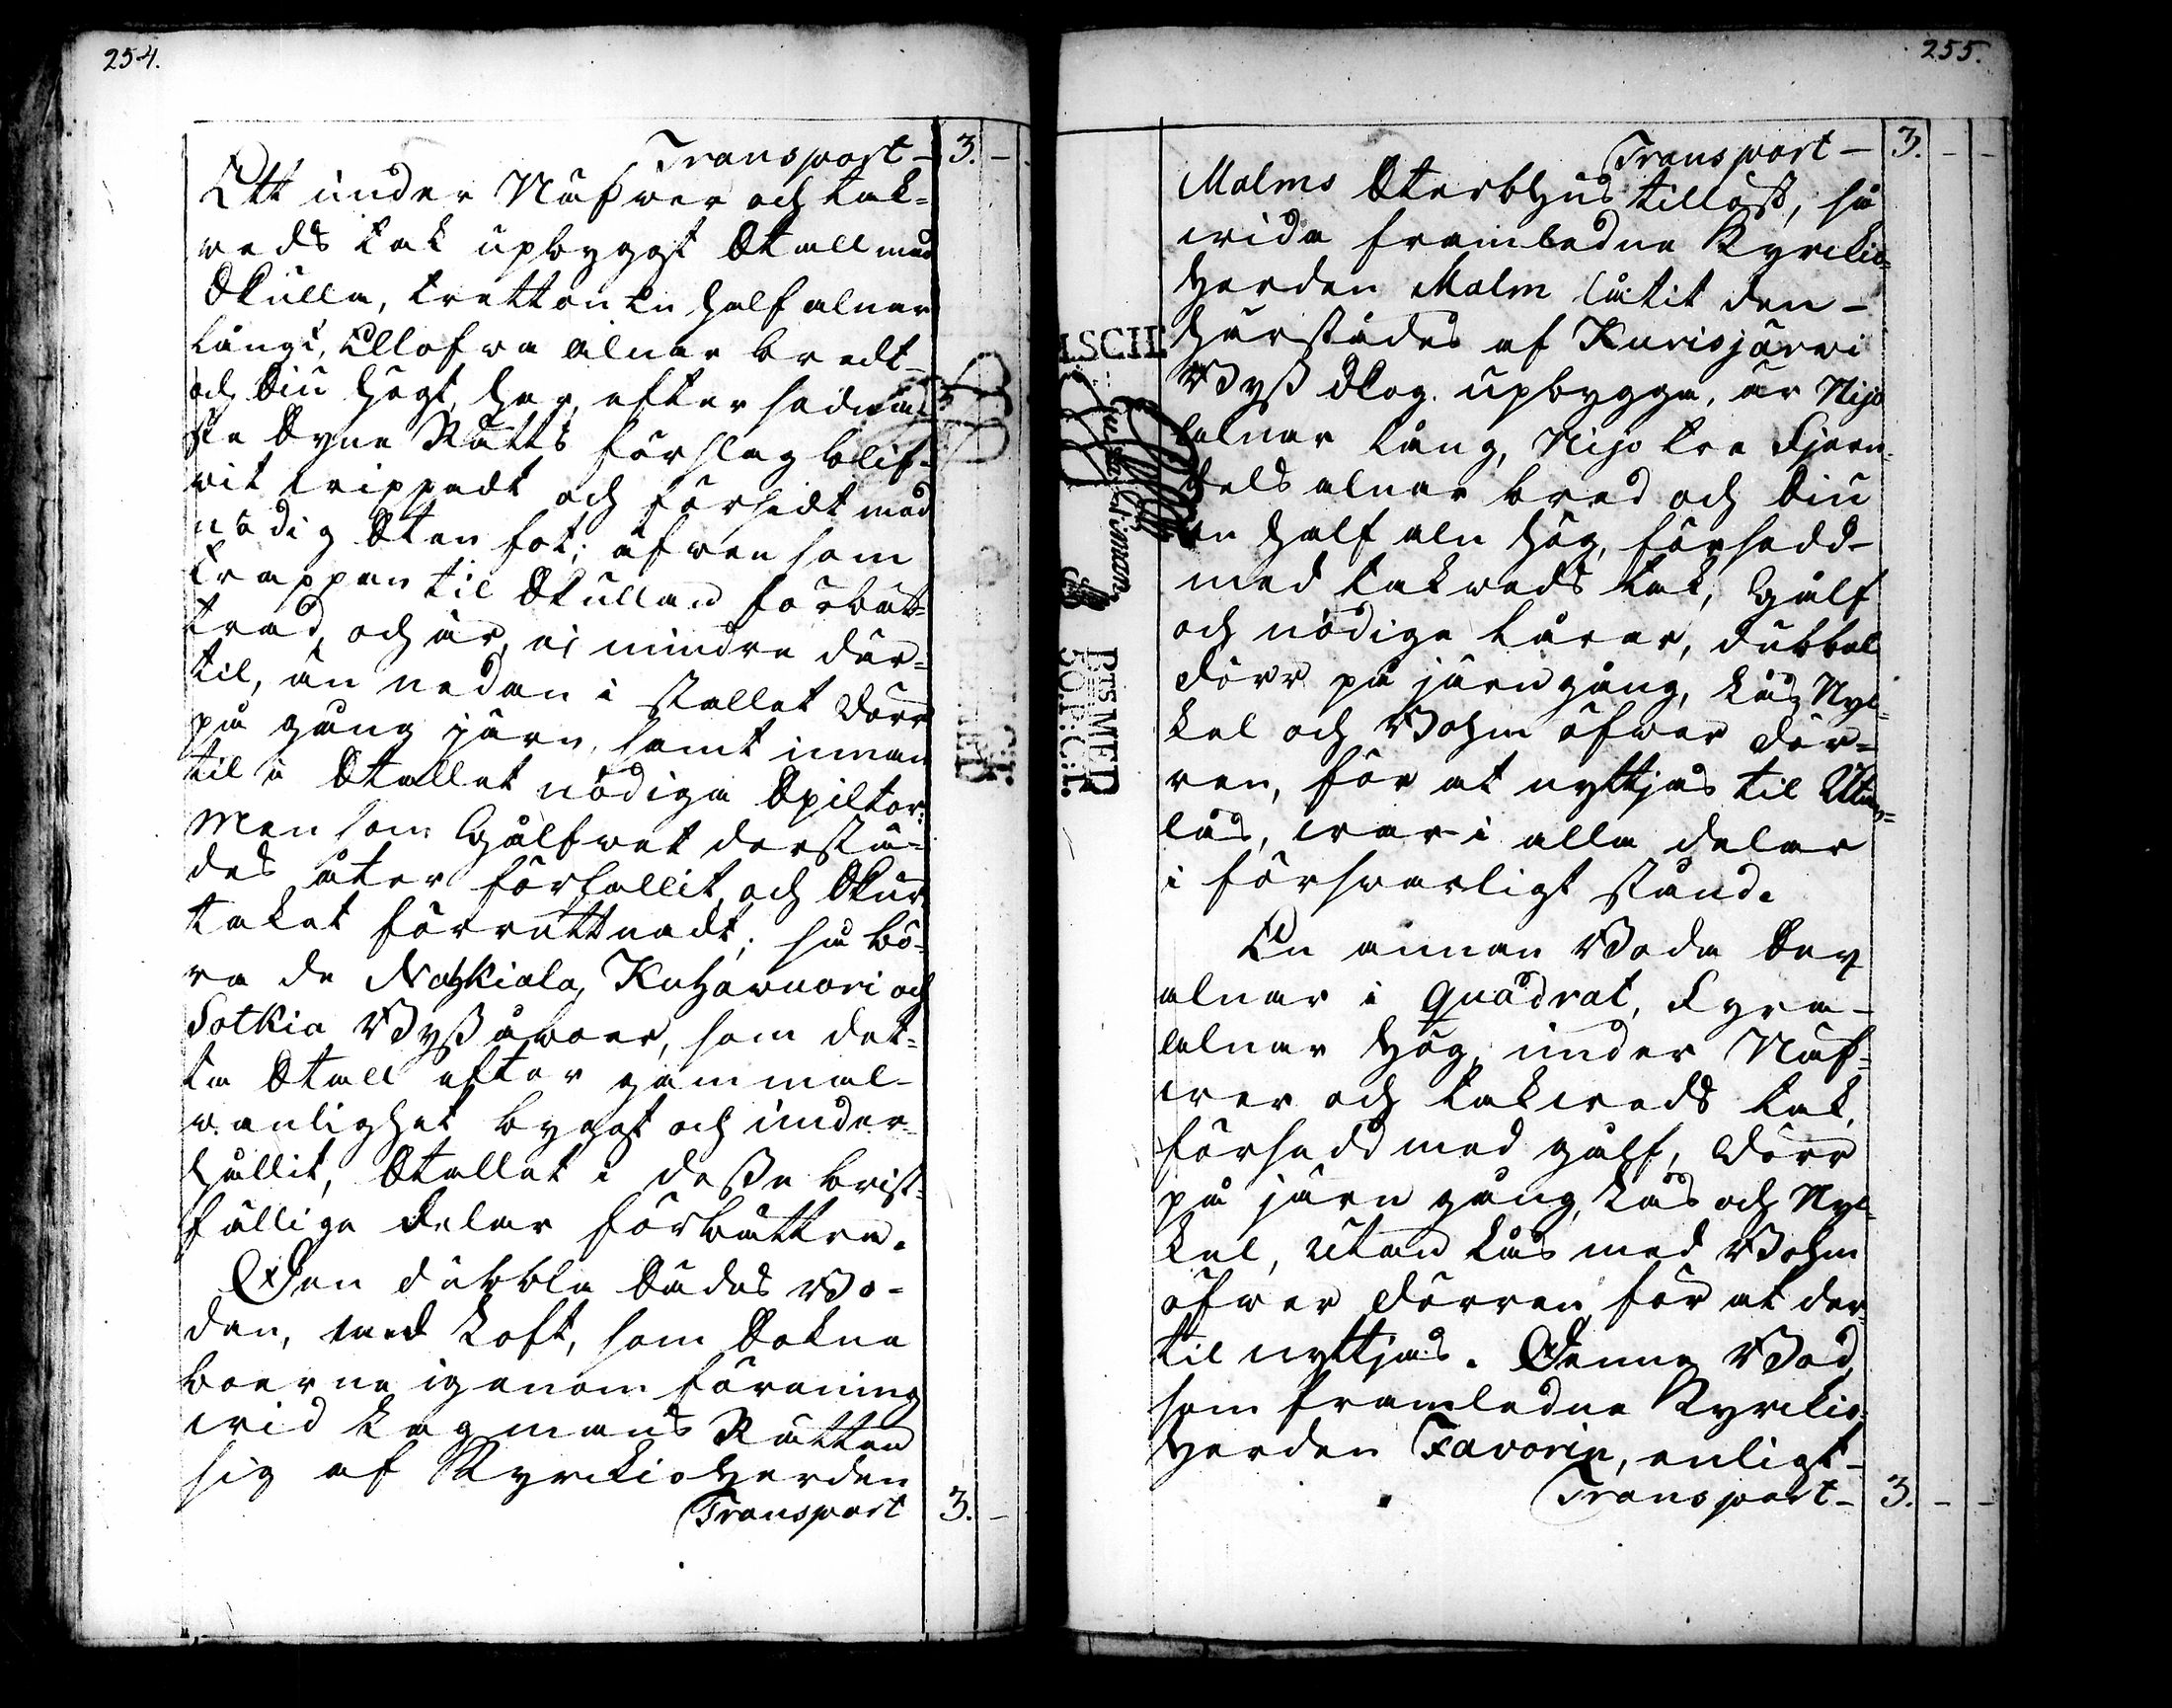 254.
Transport - 3. -
Ett under Näfwer och tak-
weds tak upbygt Stall med
Skulla, tretton en half alnar
långt, Ellofwa alnar bredt
och Siu högt, har, efter sednas-
te Syne Rätts förslag blif-
vit trippadt och försedt med
nödig Sten fot; äfwen som
trappan til Skullan förbät-
trad, och är, ei mindre där-
til, än nedan i stallet dörr
på gång järn, samt innan
til i Stallet nödiga Spiltor:
Men som Gålfwet derstä-
des åter förfallit, och Skur
taket förruttnadt; så bö-
ra de Nohkiala, Kuhawuori och
Sotkia Byß åboer, som det-
ta Stall efter gammal
vanlighet bygt och under-
hållit, Stallet i deßa brist-
fällige delar förbättra.
Den dubbla Sädes Bo-
den, med Loft, som Sokne
boerne igenom förening
wid Lagmans Rätten
sig af Kyrckioherden
Transport 3. -
255.
Transport - 3. - -
Malms Sterbhus tillöst, så
wida framledne Kyrckio-
herden Malm låtit den
härstädes af Kurisjärwi
Byß Skog upbygga, är Nijo
alnar lång, Nijo tre Fjern-
dels alnar bred och Siu
en half aln hög, försedd
med takweds tak, Gålf
och nödige Lårar, dubbel
dörr på järn gång, Lås Nyc-
kel och Bohm öfwer dör-
ren, för at nyttjas til Utan-
lås, war i alla delar
i förswarligt stånd.
En annan Boda Sex
alnar i Quadrat, Fyra
alnar hög, under Näf-
wer och takweds tak,
försedd med gålf, Dörr
på järn gång, Lås och Nyc-
kel, utan Lås med Bohm
öfwer dörren för at der
til nyttjas. Denna Bod,
som framledne Kyrckio-
herden Favorin, enligt
Transport - 3. - -